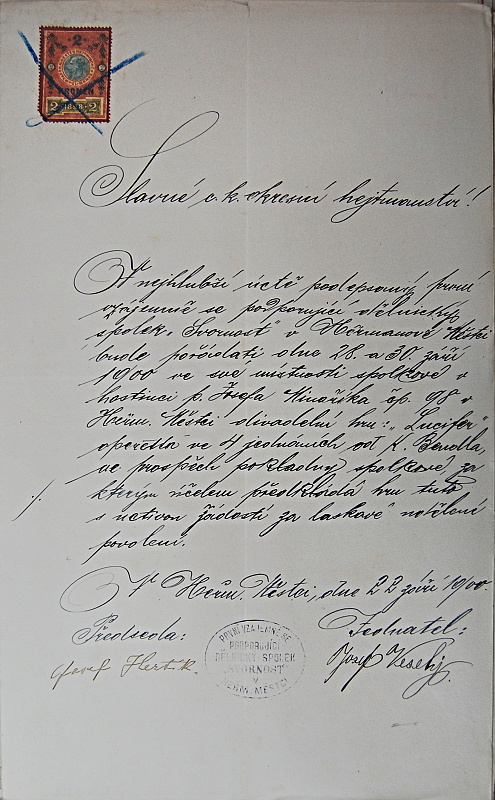 2
2 1898 2
Slavné c. k. okresní hejtmanství!
V nejhlubší úctě podepsaný první
vzájemně se podporující dělnický
spolek „Svornost" v Heřmanově Městci
bude pořádati dne 28. a 30. září
1900 ve své místnosti spolkové v
hostinci p. Josefa Vinaříka čp. 98 v
Heřm. Městci divadelní hru: „Lucifer"
operetta ve 4 jednáních od K. Bendla,
ve prospěch pokladny spolkové, za
kterým účelem předkládá hru tuto
s uctivou žádostí za laskavé udělení
povolení.
V Heřm. Městci, dne 22 září 1900.
Předseda: Jednatel:
Josef Josef Veselý.
PRVNÍ VZÁJEMNĚ SE
PODPORUJÍCÍ
DĚLNICKÝ SPOLEK
SVORNOST
V
HEŘM. MĚSTCI